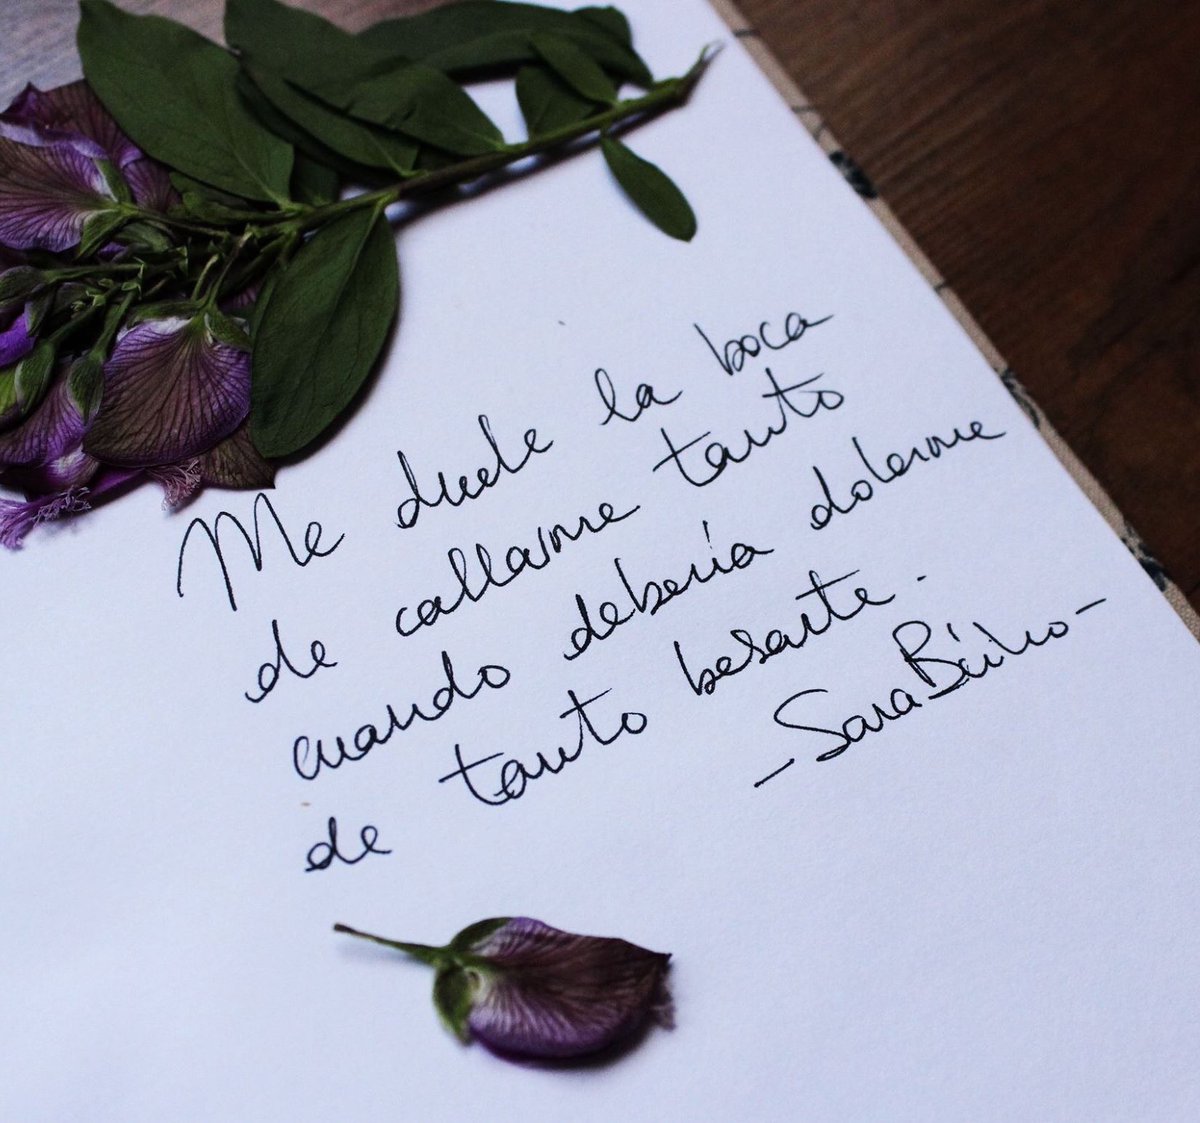 Me duele la boca
de callarme tanto
cuando debería dolerme
de tanto besarte.
- Sara Búho -